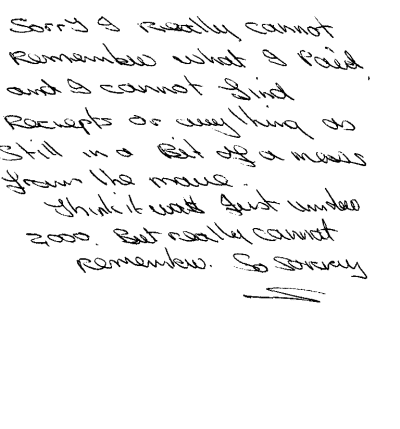 Sorry I really cannot
Remember what I Paid.
and I cannot find
Reciepts or anything as
Still in a Bit of a mess
from the move.
I think it was Just under
2,000. But really cannot
Remember. So Sorrry